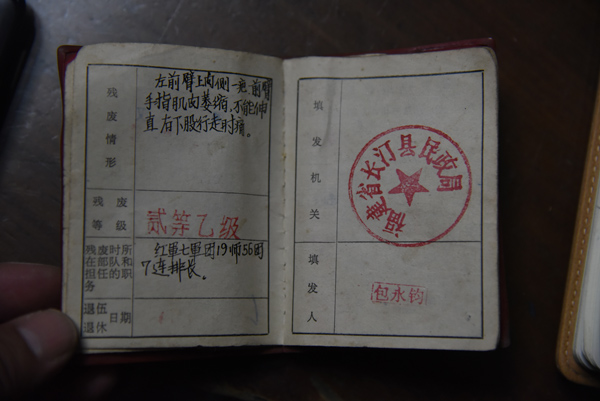 残废情形
左前臂上内侧一疤前臂
手指肌肉萎缩.不能伸
直右下股行走时痛。
残废
等级
贰等乙级
残废时所
在部队和
担任的职
务
红軍七軍团19师56团
7连排长。
退伍
退休
日期
填发机关
福建省长汀县民政局
填发人
包永钧